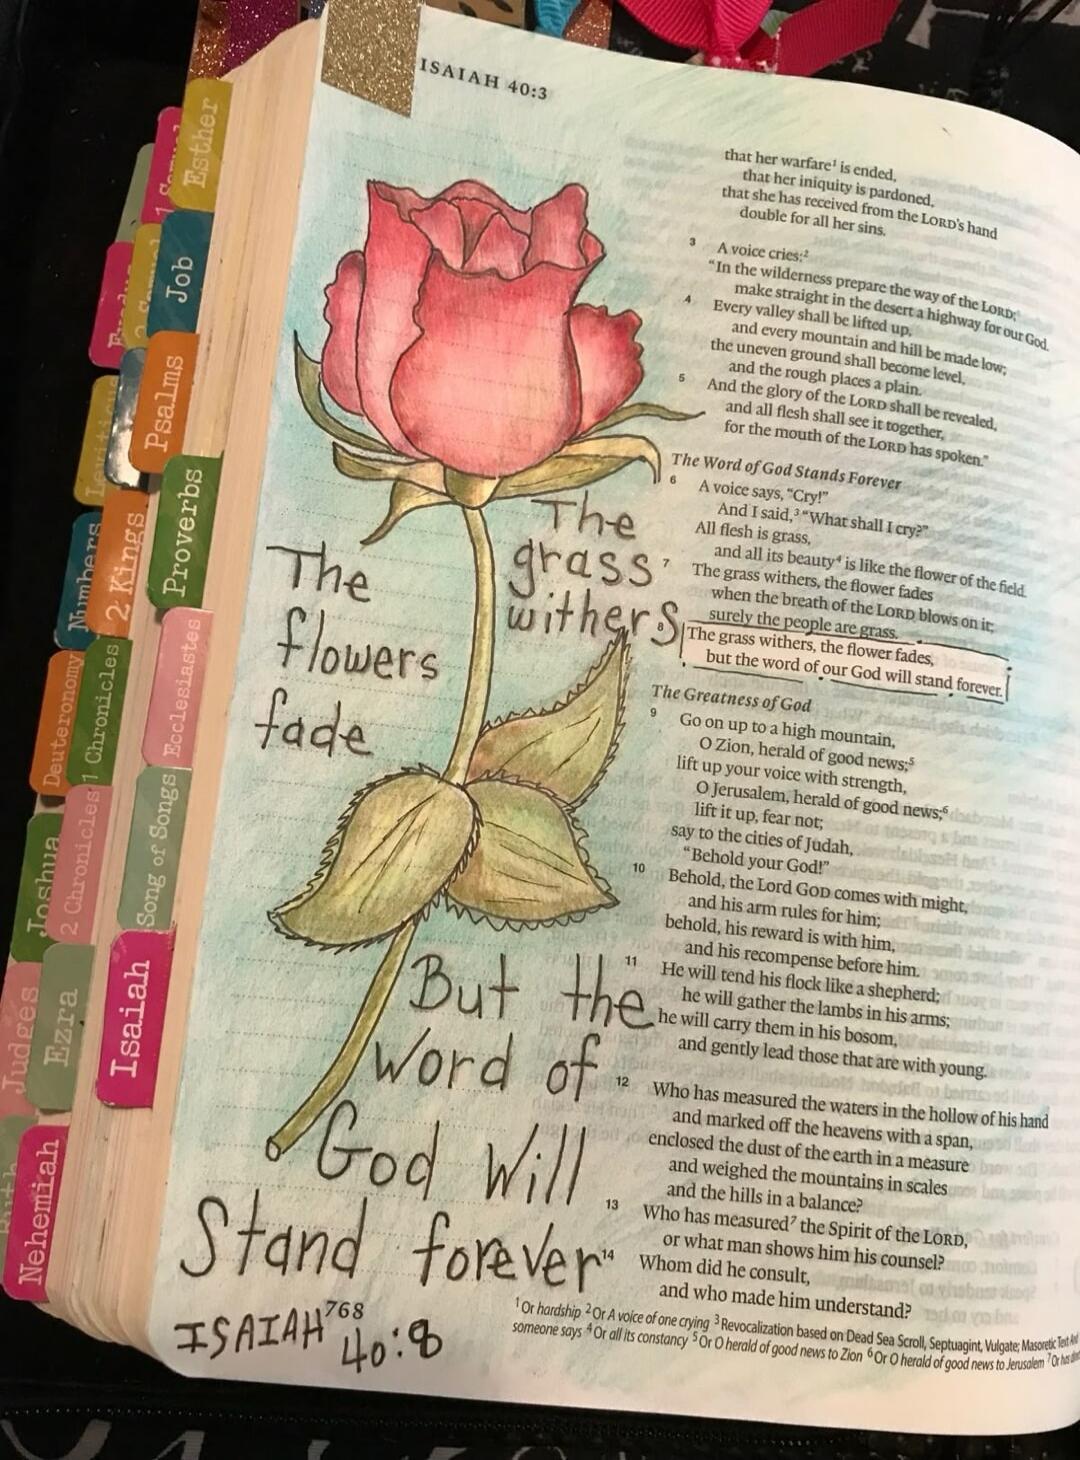 ISAIAH 40:3
that her warfare¹ is ended,
that her iniquity is pardoned,
that she has received from the LORD's hand
double for all her sins.
3 A voice cries:²
"In the wilderness prepare the way of the LORD;
make straight in the desert a highway for our God.
4 Every valley shall be lifted up,
and every mountain and hill be made low;
the uneven ground shall become level,
and the rough places a plain.
5 And the glory of the LORD shall be revealed,
and all flesh shall see it together,
for the mouth of the LORD has spoken."
The Word of God Stands Forever
6 A voice says, "Cry!"
And I said,³ "What shall I cry?"
All flesh is grass,
and all its beauty⁴ is like the flower of the field.
7 The grass withers, the flower fades
when the breath of the LORD blows on it;
surely the people are grass.
8 The grass withers, the flower fades,
but the word of our God will stand forever.
The Greatness of God
9 Go on up to a high mountain,
O Zion, herald of good news;⁵
lift up your voice with strength,
O Jerusalem, herald of good news;⁶
lift it up, fear not;
say to the cities of Judah,
"Behold your God!"
10 Behold, the Lord GOD comes with might,
and his arm rules for him;
behold, his reward is with him,
and his recompense before him.
11 He will tend his flock like a shepherd;
he will gather the lambs in his arms;
he will carry them in his bosom,
and gently lead those that are with young.
12 Who has measured the waters in the hollow of his hand
and marked off the heavens with a span,
enclosed the dust of the earth in a measure
and weighed the mountains in scales
and the hills in a balance?
13 Who has measured⁷ the Spirit of the LORD,
or what man shows him his counsel?
14 Whom did he consult,
and who made him understand?
¹ Or hardship ² Or A voice of one crying ³ Revocalization based on Dead Sea Scroll, Septuagint, Vulgate; Masoretic Text
someone says ⁴ Or all its constancy ⁵ Or O herald of good news to Zion ⁶ Or O herald of good news to Jerusalem ⁷ Or has
768
The
grass
withers
The
flowers
fade
But the
Word of
God Will
Stand forever
ISAIAH
40:8
Esther
1 Samuel
Job
2 Samuel
Exodus
Psalms
Leviticus
Proverbs
2 Kings
Numbers
Ecclesiastes
1 Chronicles
Deuteronomy
Song of Songs
2 Chronicles
Joshua
Isaiah
Ezra
Judges
Nehemiah
Ruth